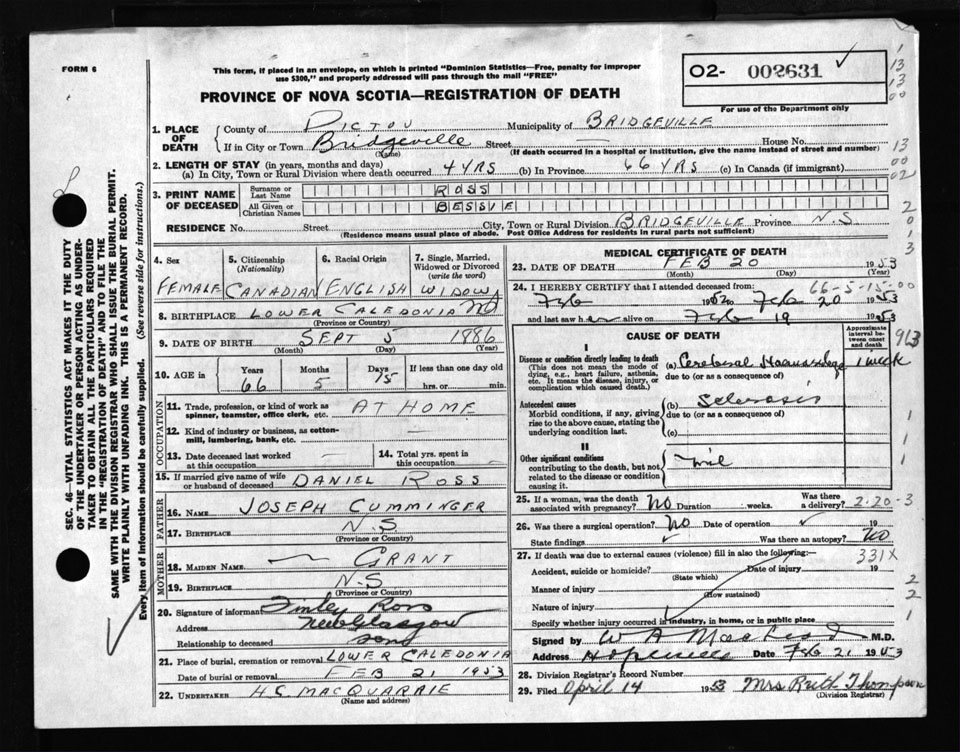 FORM 6
This form, if placed in an envelope, on which is printed "Dominion Statistics—Free, penalty for improper
use $300," and properly addressed will pass through the mail "FREE"
O2- 002631 ✓
For use of the Department only
PROVINCE OF NOVA SCOTIA—REGISTRATION OF DEATH
1. PLACE OF DEATH
County of PICTOU Municipality of BRIDGEVILLE
If in City or Town Bridgeville Street House No.
(Name) (If death occurred in a hospital or institution, give the name instead of street and number)
2. LENGTH OF STAY (in years, months and days)
(a) In City, Town or Rural Division where death occurred 4 YRS (b) In Province 66 YRS (c) In Canada (if immigrant)
3. PRINT NAME OF DECEASED
Surname or Last Name ROSS
All Given or Christian Names BESSIE
RESIDENCE No. Street City, Town or Rural Division BRIDGEVILLE Province N.S.
(Residence means usual place of abode. Post Office Address for residents in rural parts not sufficient)
4. Sex FEMALE
5. Citizenship (Nationality) CANADIAN
6. Racial Origin ENGLISH
7. Single, Married, Widowed or Divorced (write the word) WIDOW
8. BIRTHPLACE LOWER CALEDONIA NS
(Province or Country)
9. DATE OF BIRTH SEPT 5 1886
(Month) (Day) (Year)
10. AGE in Years 66 Months 5 Days 15 If less than one day old hrs. or min.
OCCUPATION
11. Trade, profession, or kind of work as spinner, teamster, office clerk, etc. AT HOME
12. Kind of industry or business, as cotton-mill, lumbering, bank, etc. —
13. Date deceased last worked at this occupation —
14. Total yrs. spent in this occupation —
15. If married give name of wife or husband of deceased DANIEL ROSS
FATHER
16. NAME JOSEPH CUMMINGER
17. BIRTHPLACE N.S.
(Province or Country)
MOTHER
18. MAIDEN NAME — GRANT
19. BIRTHPLACE N.S
(Province or Country)
20. Signature of informant Finley Ross
Address New Glasgow
Relationship to deceased son
21. Place of burial, cremation or removal LOWER CALEDONIA
Date of burial or removal FEB 21 1953
22. UNDERTAKER H.C. MACQUARRIE
(Name and address)
MEDICAL CERTIFICATE OF DEATH
23. DATE OF DEATH FEB 20 1953
(Month) (Day) (Year)
66-5-15-00
24. I HEREBY CERTIFY that I attended deceased from:
Feb 1952 to Feb 20 1953
and last saw her alive on Feb 19 1953
CAUSE OF DEATH
Approximate interval between onset and death
913
I
Disease or condition directly leading to death
(This does not mean the mode of dying, e.g., heart failure, asthenia, etc. It means the disease, injury, or complication which caused death.)
(a) Cerebral Haemorrhage 1 week
due to (or as a consequence of)
Antecedent causes
Morbid conditions, if any, giving rise to the above cause, stating the underlying condition last.
(b) Sclerosis
due to (or as a consequence of)
(c)
II
Other significant conditions
contributing to the death, but not related to the disease or condition causing it.
nil
25. If a woman, was the death associated with pregnancy? No Duration weeks. Was there a delivery? 2-20-3
26. Was there a surgical operation? No Date of operation ✓ 19
State findings ✓ Was there an autopsy? No
27. If death was due to external causes (violence) fill in also the following:— 331X
Accident, suicide or homicide? Date of injury 19
(State which)
Manner of injury
(How sustained)
Nature of injury
Specify whether injury occurred in industry, in home, or in public place
Signed by W A MacLeod M.D.
Address Hopewell Date Feb 21 1953
28. Division Registrar's Record Number
29. Filed April 14 1953 Mrs Ruth Thompson
(Division Registrar)
SEC. 46—VITAL STATISTICS ACT MAKES IT THE DUTY
OF THE UNDERTAKER OR PERSON ACTING AS UNDER-
TAKER TO OBTAIN ALL THE PARTICULARS REQUIRED
IN THE "REGISTRATION OF DEATH" AND TO FILE THE
SAME WITH THE DIVISION REGISTRAR WHO SHALL ISSUE THE BURIAL PERMIT.
WRITE PLAINLY WITH UNFADING INK. THIS IS A PERMANENT RECORD.
Every item of information should be carefully supplied. (See reverse side for instructions.)
13
13
00
13
00
02
2
0
1
3
1
1
2
2